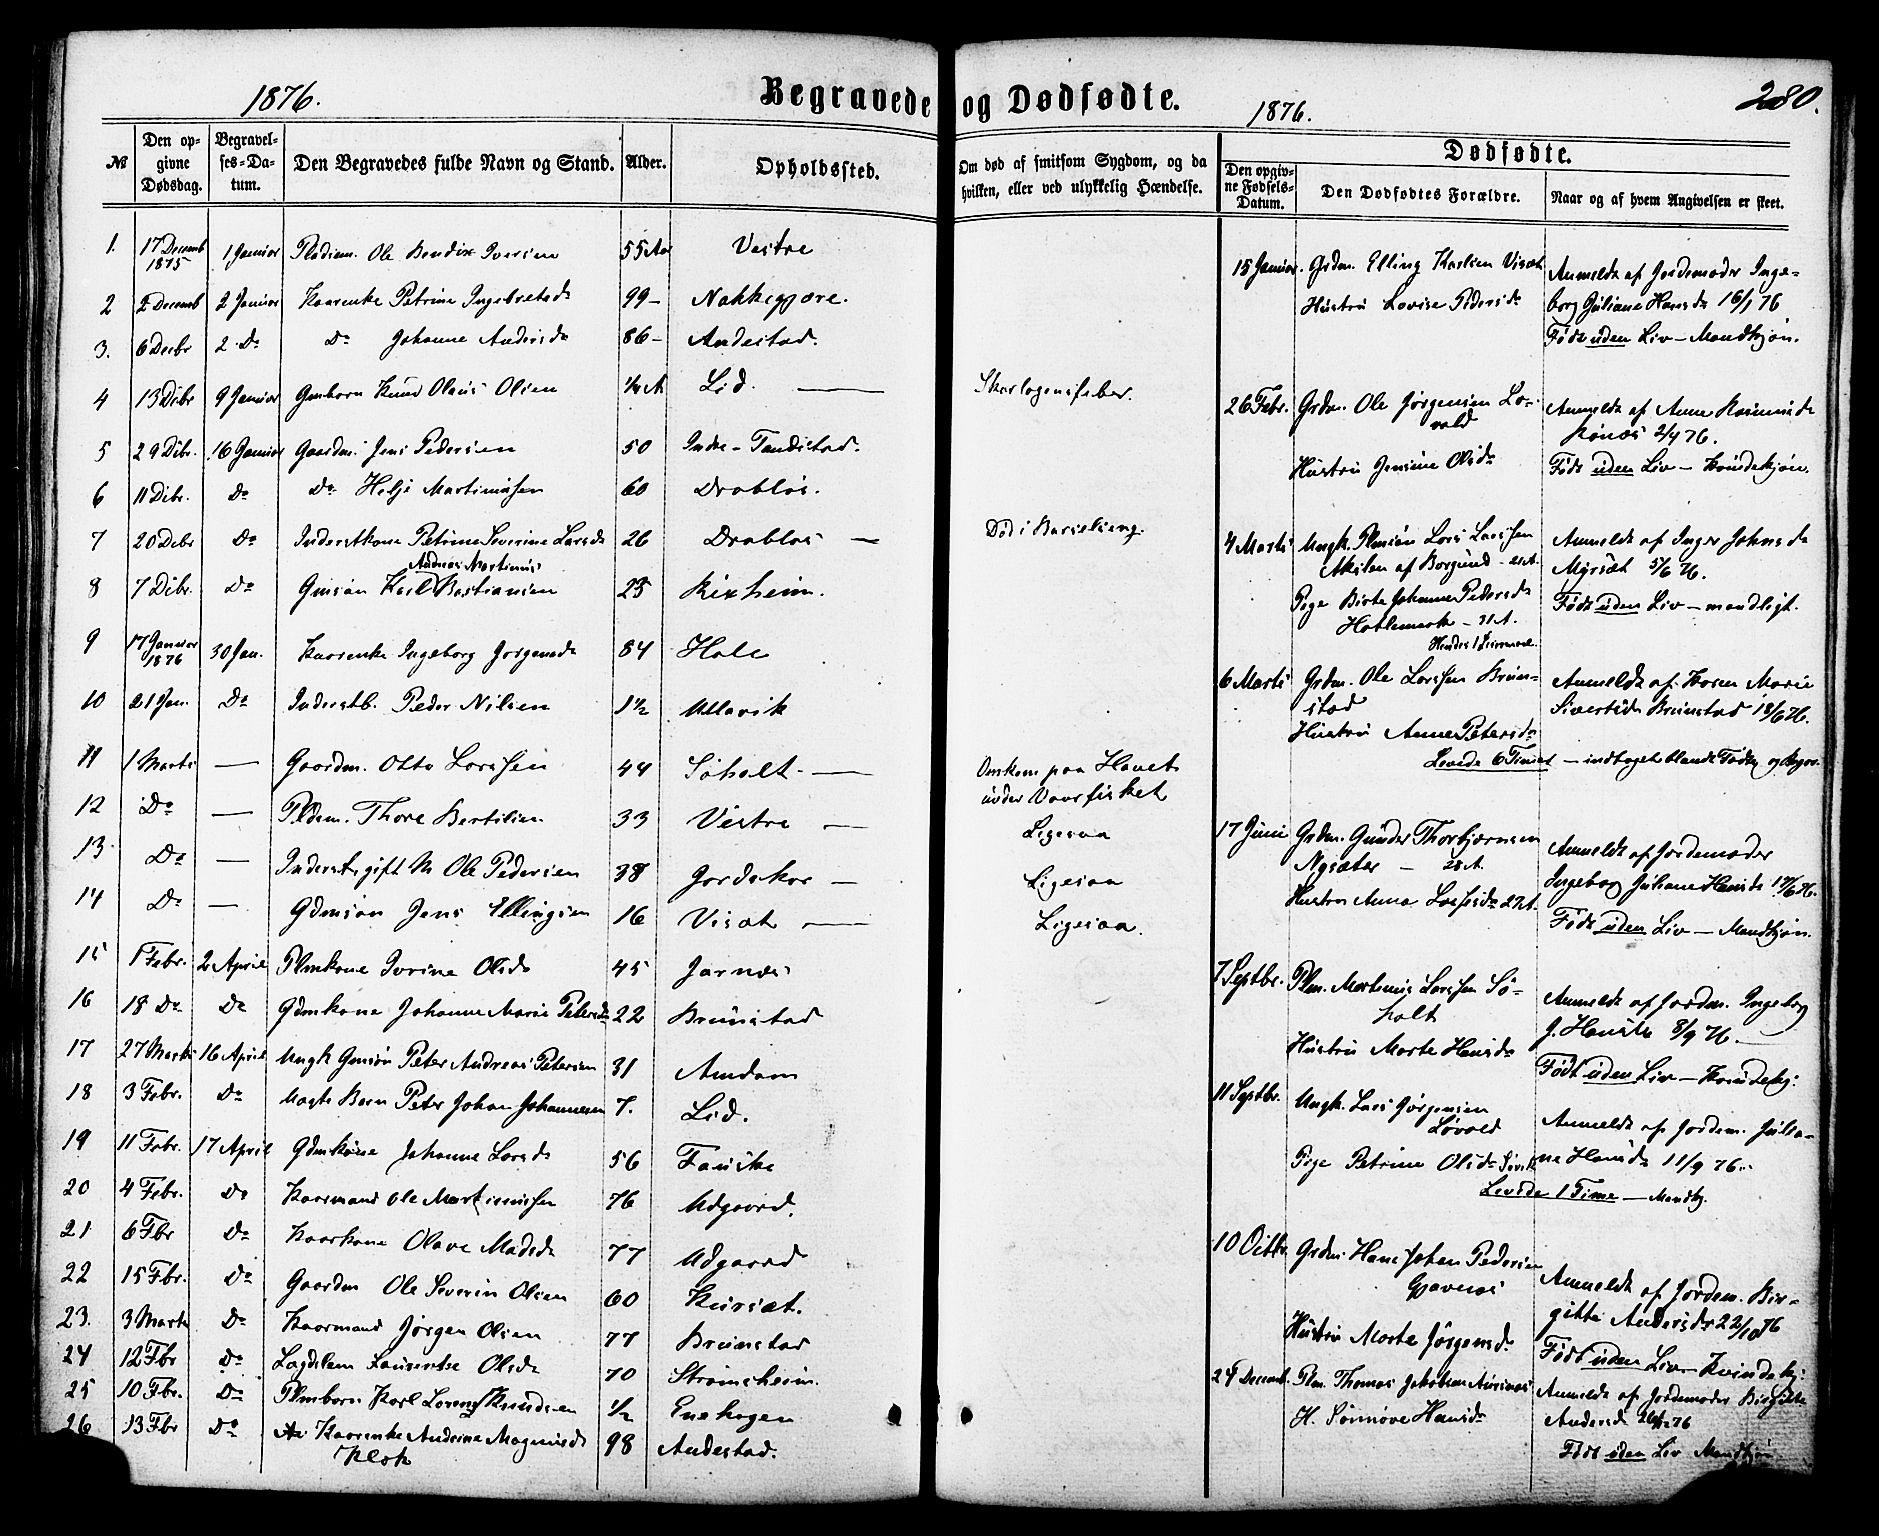 1876.
Begravede og Dødfødte.
1876.
280.
№
Den opgivne Dødsdag.
Begravelses-Datum.
Den Begravedes fulde Navn og Stand.
Alder.
Opholdssted.
Om død af smitsom Sygdom, og da
hvilken, eller ved ulykkelig Hændelse.
Dødfødte.
Den opgivne Fødsels-Datum.
Den Dødfødtes Forældre.
Naar og af hvem Angivelsen er skeet.
1. 17 Decemb 1875 1 Januar Pladsm. Ole Bendix Iversen 55 Aar Vestre
2 2 Decemb 2 Januar Kaarenke Petrine Ingebretsd 99 – Nakkegjære.
3. 6 Decbr 2 Do Do Johanne Andersd 86 – Andestad.
4 13 Dcbr 9 Januar Gmbarn Knud Olaus Olsen Lid. Skarlagensfeber.
5 29 Dcbr. 16 Januar Gaardm. Jens Pedersen 50 Indre-Tandstad.
6 11 Dcbr. Do Do Helje Martinussen 60 Drabløs.
7 20 Dcbr Do Inderstkone Petrine Severine Larsd 26 Drabløs – Død i Barselseng.
Andreas Martinus
8 7 Dcbr. Do Gmsøn Karl Bastiansen 25 Rixheim.
9 17 Januar 1876 30 Jan. Kaarenke Ingeborg Jørgensd 84 Hole
10 21 Jan. Do Inderstb. Peder Nilsen 1½ Ullavik
11 1 Marts — Gaardm. Otto Larssen 44 Søholt — Omkom paa Havet
under Vaarfisket
12 Do — Pldsm. Thore Bertilsen 33 Vestre — Ligesaa
13 Do — Inderst gift M Ole Pedersen 38 Gjordskar — Ligesaa
14 Do — Gdmsøn Jens Ellingsen 16 Visæt — Ligesaa.
15 1 Febr. 2 April Plmkone Iverine Olsd 45 Jarnæs
16 18 Do Do Gdmkone Johanne Marie Petersd 22 Brunstad
17 27 Marts 16 April Ungk Gmsøn Peter Andreas Petersen 31 Amdam
18 3 Febr. Do Uægte Barn Peter Johan Johannessen 7. Lid.
19 11 Febr. 17 April Gdmkone Johanne Larsd 56 Fauske
20 4 Febr. Do Kaarmand Ole Martinussen 76 Udgaard.
21 6 Fbr Do Kaarkone Olave Madsd 77 Udgaard
22 15 Fbr. Do Gaardm Ole Severin Olsen 60 Kursæt.
23. 3 Marts Do Kaarmand Jørgen Olsen 77 Brunstad
24 12 Fbr Do Lægdslem Laurentse Olsd 70 Strømsheim.
25 10 Fbr. Do Plmbarn Karl Lorents Knudsen ½ Enehagen
26 13 Fbr Do Kaarenke Andrine Magnusd 98 Andestad.
Klok
15 Januar. Grdm. Elling Karlsen Visæt
Hustru Lovise Pedersd
Anmeldt af Jordemoder Inge-
borg Juliane Hansd 16/1 76
Født uden Liv – Mandkjøn.
26 Febr. Grdm. Ole Jørgensen Lø-
vold
Hustru Jensine Olsd
Anmeldt af Anne Rasmusd
2/4 76.
Født uden Liv – Kvindekjøn.
4 Marts Ungk. Plmsøn Lars Larssen
Akslen af Borgund –
Pige Birte Johanne Pedersd
Hatlemark – 31 A.
Anmeldt af Inger Johnsd
Myrsæt 5/6 76.
Født uden Liv – mandligt.
6 Marts Grdm. Ole Larssen Brun-
stad
Hustru Anne Petersd
Levede 6 Timer – indtaget blandt Fødte og Begrav
Anmeldt af Karen Marie
Sivertsd Brunstad 18/6 76.
17 Juni Grdm. Gunder Thorbjørnsen
Nysæter – 28 A.
Hustru Anna Larsd 27 A.
Anmeldt af Jordemoder
Ingeborg Juliane Hansd 17/6 76.
Født uden Liv – Mandkjøn.
7 Septbr. Plm. Martinus Larssen Sø-
holt
Hustru Marte Hansd
Anmeldt af Jordm. Ingeborg
J. Hansd 8/9 76.
Født uden Liv – Kvindekj:
11 Septbr. Ungk. Lars Jørgensen
Løvold
Pige Petrine Olsd
Levede 1 Time – Mandkj.
Anmeldt af Jordem. Julia-
ne Hansd 11/9 76.
10 Octbr. Grdm. Hans Johan Pedersen
Gjævenes
Hustru Marte Jørgensd.
Anmeldt af Jordem. Bir-
gitte Andersd 22/10 76
Født uden Liv – Kvindekj:
24 Decemb. Plm. Thomas Jakobsen
H. Sønnøve Hansd
Anmeldt af Jordemoder Birgitte
Andersd
Født uden Liv Mandkjøn